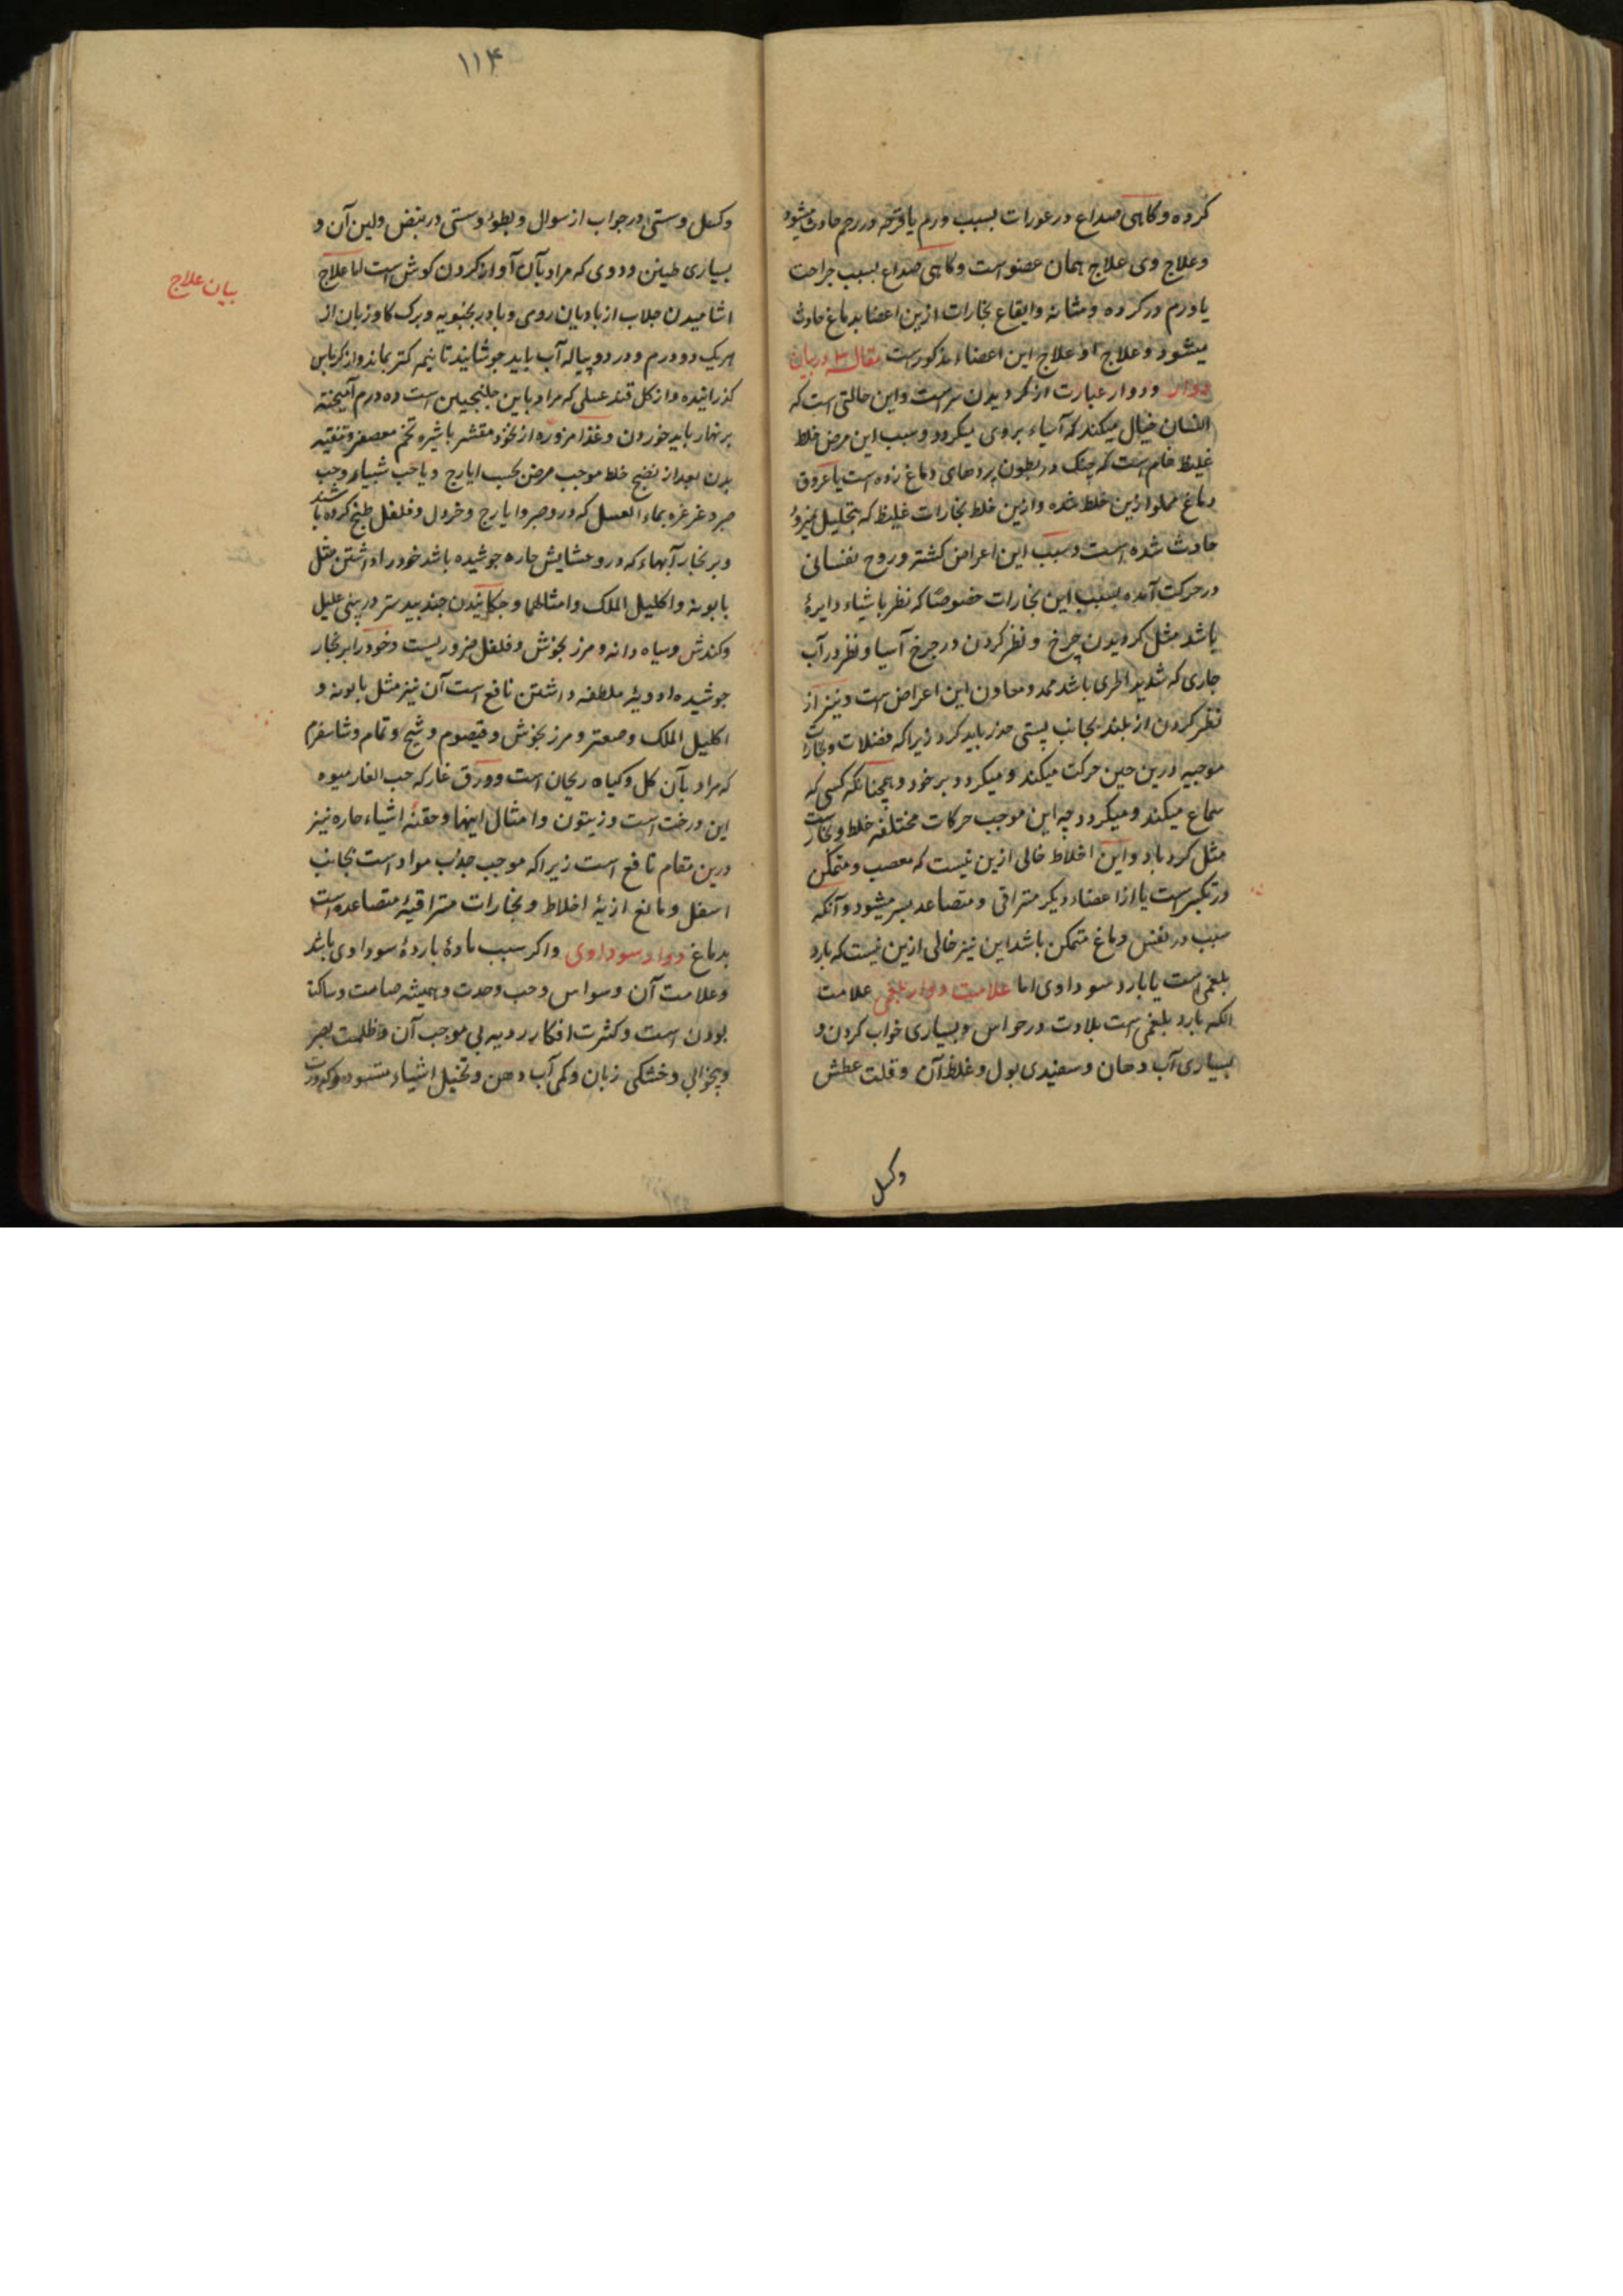 کرده و کاهی صداع در عورات بسبب ورم یا قرحه در رحم حادث میشود
و علاج وی علاج همان عضو است و کاهی صداع بسبب جراحت
یا ورم در کرده و مثانه و ایقاع بخارات ازین اعضا بدماغ حادث
میشود و علاج او علاج این اعضاء مذکور است مقاله ۳ در بیان
دوار و دوار عبارت از کردیدن سر است و این حالتی است که
انسان خیال میکند که اشیاء بر وی میکردد و سبب این مرض خلط
غلیظ خام است که چنک در بطون پردهای دماغ زده است یا عروق
دماغ مملو ازین خلط شده و ازین خلط بخارات غلیظ که بتحلیل نمیرود
حادث شده است و سبب این اعراض کشته و روح نفسانی
در حرکت آمده بسبب این بخارات خصوصا که نظر باشیاء دایرهٔ
باشد مثل کردیدن چرخ و نظر کردن در چرخ آسیا و نظر در آب
جاری که شدید الجری باشد ممد و معاون این اعراض است و نیز از
نظر کردن از بلند بجانب پستی حذر باید کرد زیرا که فضلات و بخارات
موجبه درین حین حرکت میکند و میکردد بر خود و همچنانکه کسی که
سماع میکند و میکردد چه این موجب حرکات مختلفه خلط و بخار است
مثل کردباد و این اخلاط خالی ازین نیست که معصب و متمکن
در سر است یا از اعضاء دیکر متراقی و متصاعد بسر میشود و آنکه
سبب در نفس دماغ متمکن باشد این نیز خالی ازین نیست که بارد
بلغمی است یا بارد سوداوی اما علامت دوار بلغمی علامت
انکه بارد بلغمی است بلادت در حواس و بسیاری خواب کردن و
بسیاری آب دهان و سفیدی بول و غلظ آن و قلت عطش
وکسل
۱۱۴
وکسل و سستی در جواب از سوال و بطوء و سستی در نبض و لین آن و
بسیاری طنین و دوی که مراد بآن آواز کردن کوش است اما علاج
بیان علاج
اشامیدن جلاب از بادیان رومی و بادرنجبویه و برک کاوزبان از
هر یک دو درم و در دو پیاله آب باید جوشانید تا نیمه کمتر بماند و از کرباس
کذرانیده و از کل قند عسلی که مراد باین جلنجبین است ده درم آمیخته
بر نهار باید خوردن و غذا مزوره از نخود مقشر با شیره تخم معصفر و تنقیه
بدن بعد از نضج خلط موجب مرض بحسب ایارج و یا حب شبیار و حب
صبر و غرغره بماء العسل که در و صبر و ایارج و خردل و فلفل طبخ کرده باشند
و بر بخار آبهاء که در و حشایش حاره جوشیده باشد خود را داشتن مثل
بابونه و اکلیل الملک و امثالها و چکانیدن جندبیدستر در بینی علیل
و کندش و سیاه دانه و مرزنجوش و فلفل ضروریست و خود را بر بخار
جوشیده ادویهٔ ملطفه داشتن نافع است آن نیز مثل بابونه و
اکلیل الملک و صعتر و مرزنجوش و قیصوم و شیح و نمام و شاسفرم
که مراد بآن کل و کیاه ریحان است و ورق غار که حب الغار میوه
این درخت است و زیتون و امثال اینها و حقنهٔ اشیاء حاره نیز
درین مقام نافع است زیرا که موجب جذب مواد است بجانب
اسفل و مانع ازیهٔ اخلاط و بخارات متراقیهٔ متصاعده است
بدماغ دوار سوداوی و اکر سبب مادهٔ باردهٔ سوداوی باشد
و علامت آن وسواس و حب وحدت و همیشه صامت و ساکت
بودن است و کثرت افکار ردیه بی موجب آن و ظلمت بصر
و بیخوابی و خشکی زبان و کمی آب دهن و تخیل اشیاء مسوده و کدورت